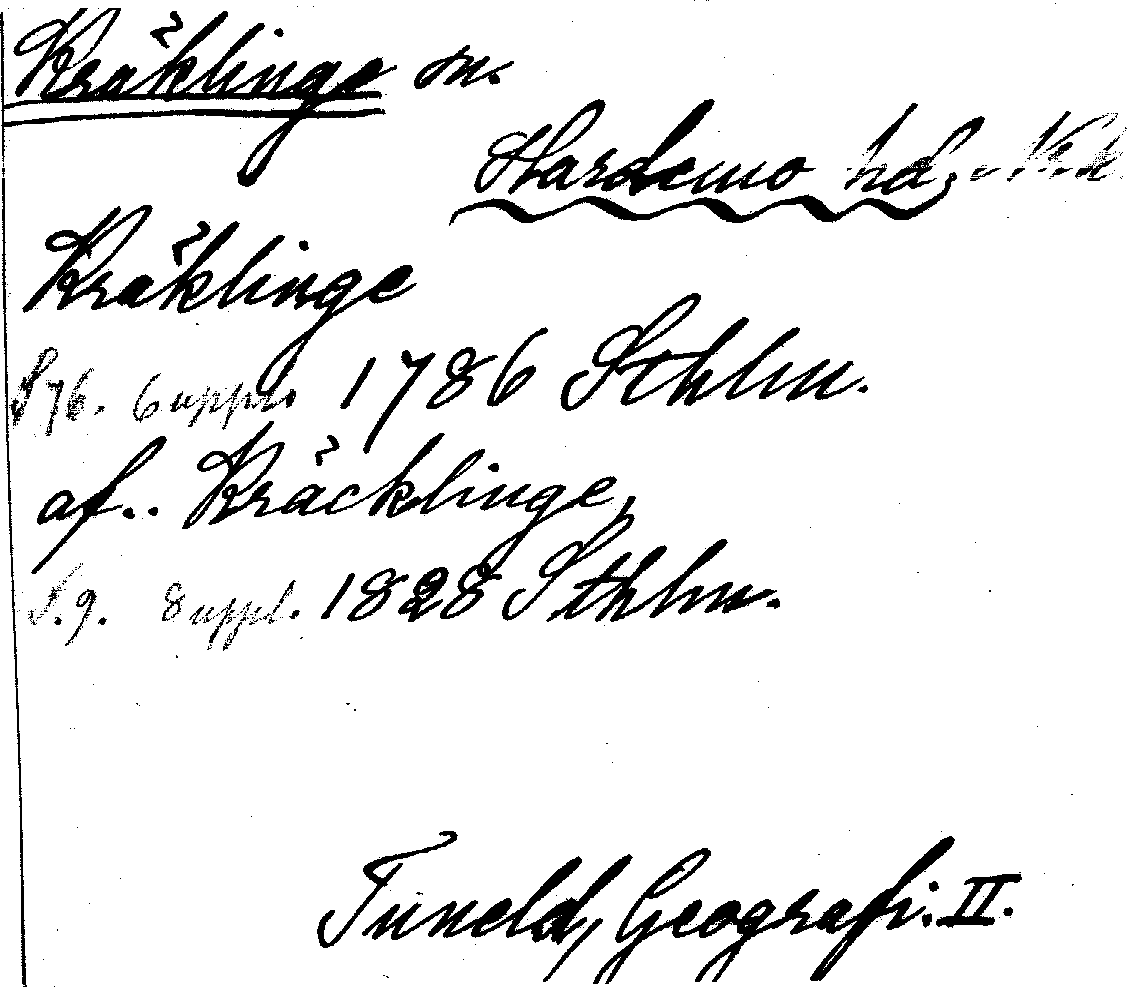 Kräklinge sn.
Hardemo hd,
Kräklinge
S 76. 6 uppl. 1786 Sthlm.
af.. Kräcklinge,
S. 9. 8 uppl. 1828 Sthlm.
Tuneld, Geografi. II.